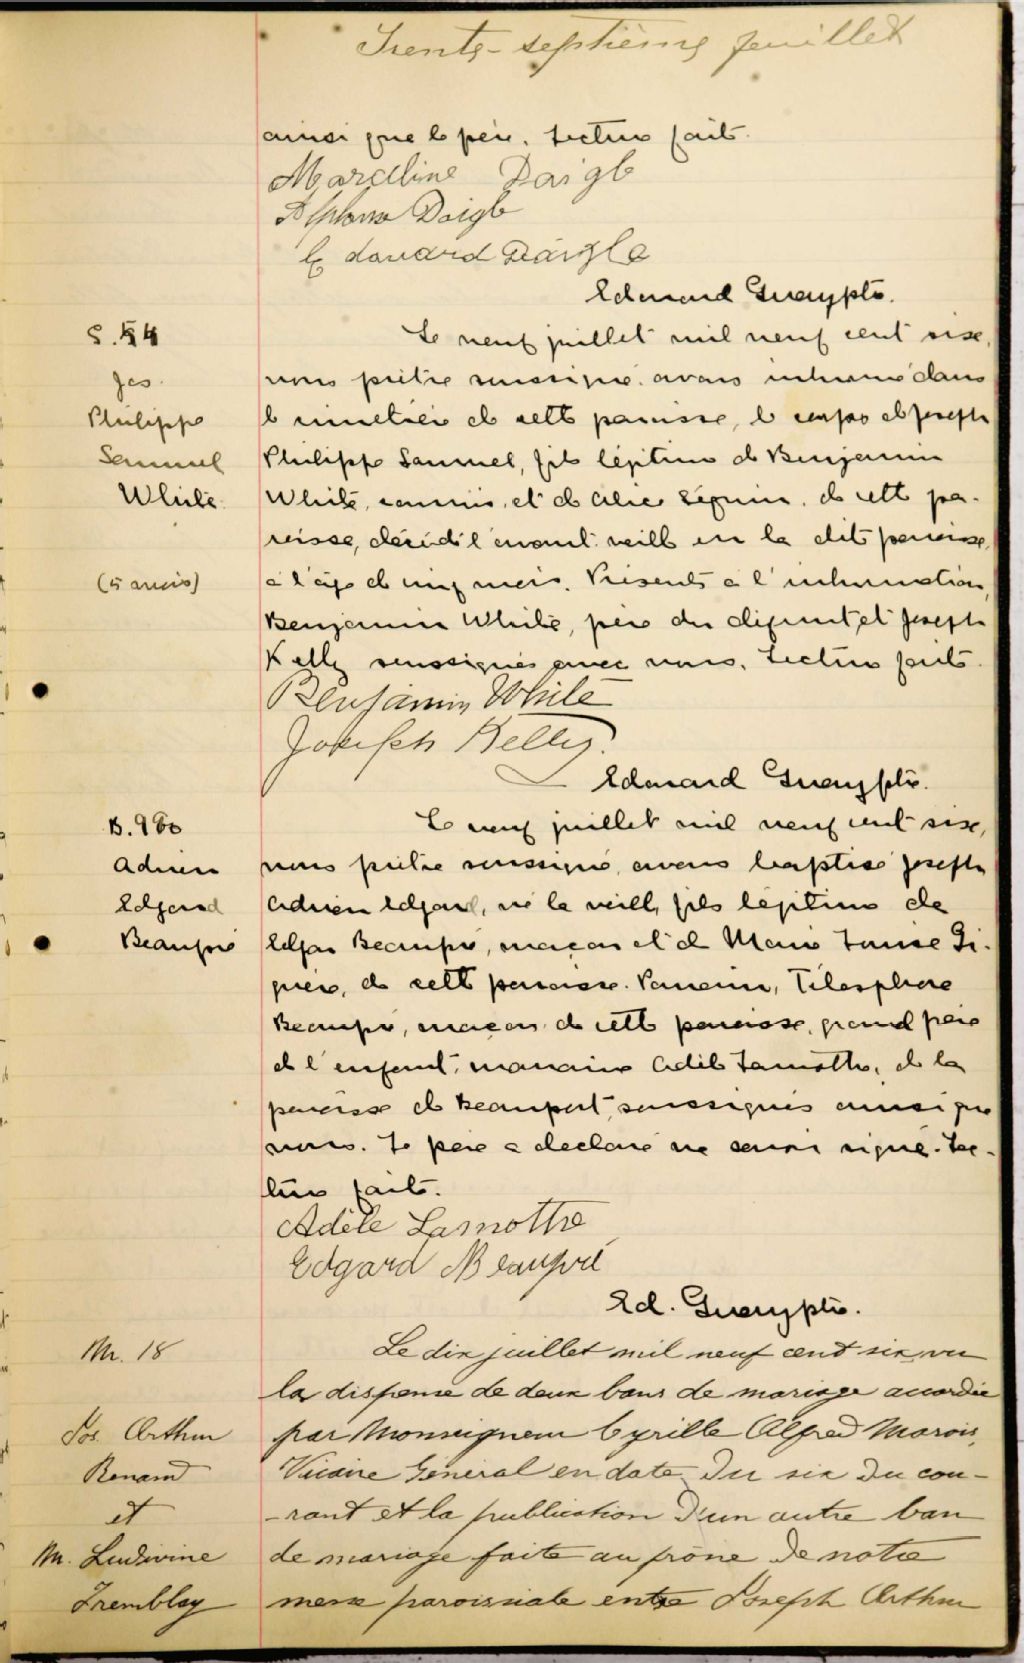 Trente-septième feuillet
ainsi que le père. Lecture faite.
Marcelline Daigle
Alphonse Daigle
Edouard Daigle
Edouard Guay ptre.
S. 54
Le neuf juillet mil neuf cent six,
Jos.
nous prêtre soussigné avons inhumé dans
Philippe
le cimetière de cette paroisse, le corps de Joseph
Samuel
Philippe Samuel, fils légitime de Benjamin
White
White, commis, et de Alice Séguin, de cette pa-
roisse, décédé l'avant-veille en la dite paroisse,
(5 mois)
à l'âge de cinq mois. Présents à l'inhumation,
Benjamin White, père du défunt, et Joseph
Kelly soussignés avec nous. Lecture faite.
Benjamin White
Joseph Kelly.
Edouard Guay ptre.
B.
Le neuf juillet mil neuf cent six,
Adrien
nous prêtre soussigné, avons baptisé Joseph
Edgard
Adrien Edgard, né la veille, fils légitime de
Beaupré
Edgar Beaupré, maçon et de Marie Louise Gi-
guère, de cette paroisse. Parrain, Télesphore
Beaupré, maçon de cette paroisse, grand père
de l'enfant, marraine Adèle Lamotte, de la
paroisse de Beauport, soussignés ainsi que
nous. Le père a déclaré ne savoir signer. Lec-
ture faite.
Adèle Lamotte
Edgard Beaupré
Ed. Guay ptre.
M. 18
Le dix juillet mil neuf cent six, vu
la dispense de deux bans de mariage accordée
Jos. Arthur
par Monseigneur Cyrille Alfred Marois,
Renaud
Vicaire Général en date du six du cou-
et
-rant et la publication d'un autre ban
M. Ludivine
de mariage faite au prône de notre
Tremblay
messe paroissiale entre Joseph Arthur